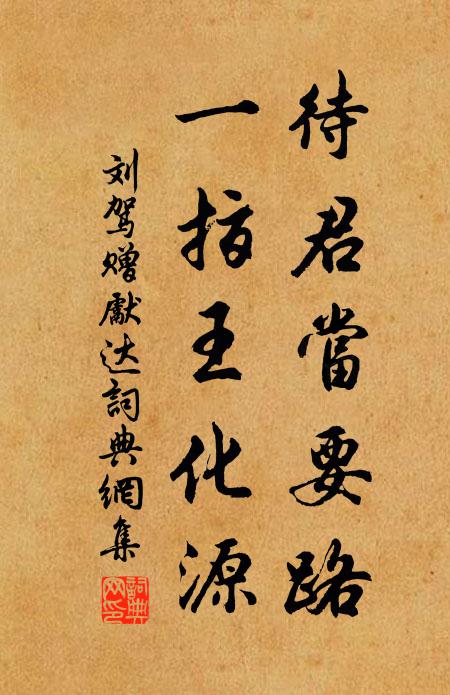 待君當要路
一指王化源
刘驾赠獻达詞典網集
詞典网印